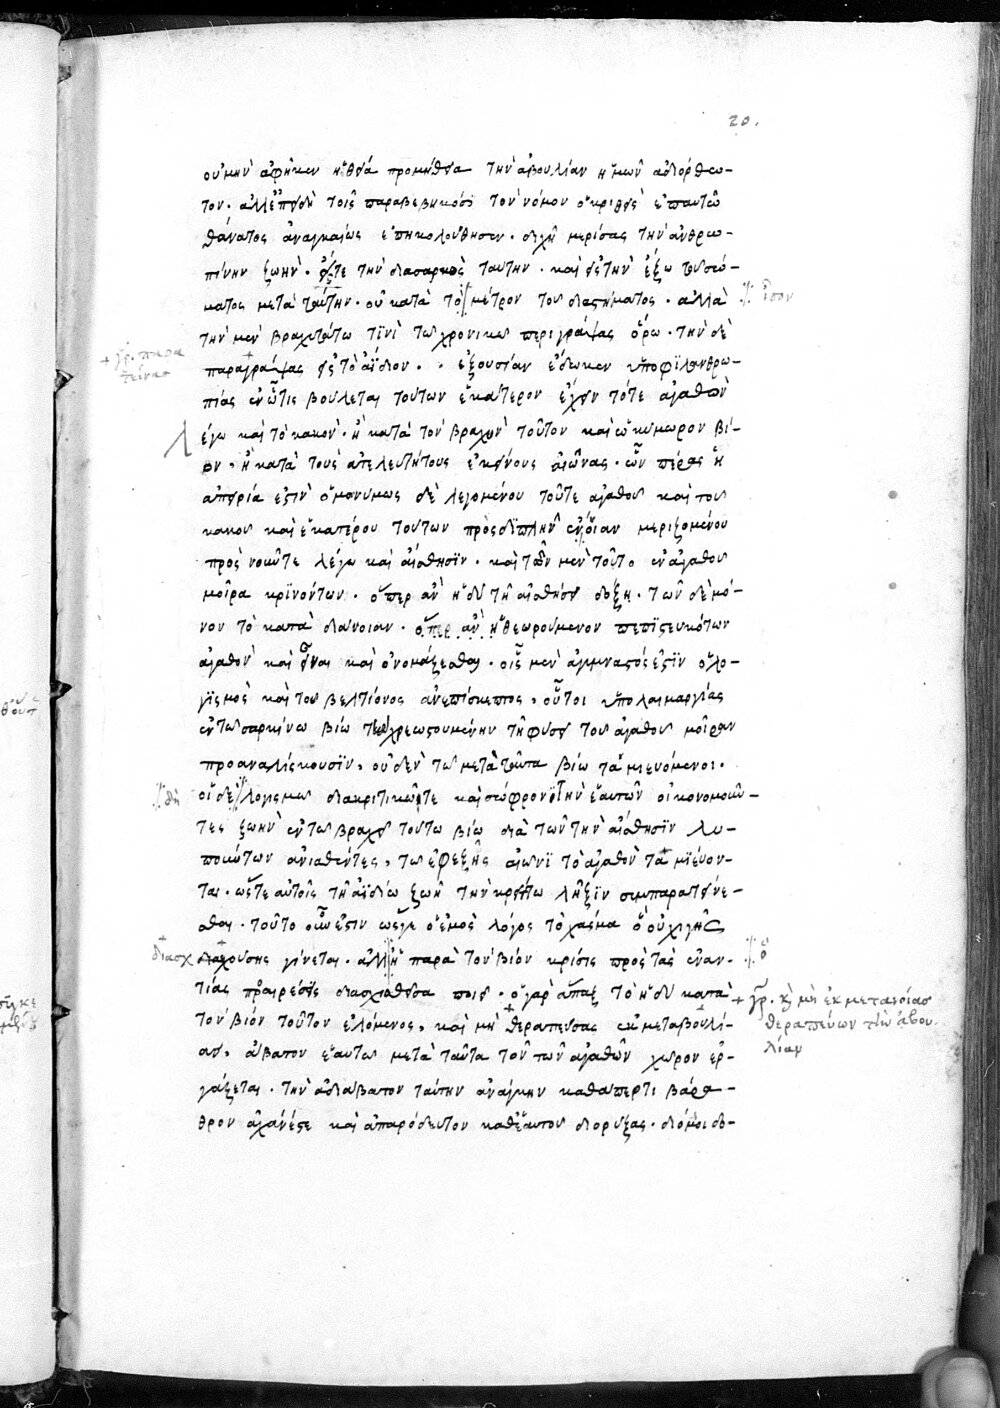 20.
οὐ μὴν ἀφῆκεν ἡ θεία προμήθεια τὴν ἀβουλίαν ἡμῶν ἀδιόρθω-
τον. ἀλλ' ἐπειδὴ τοῖς παραβεβηκόσι τὸν νόμον ὁ κριθεὶς ἐπ' αὐτῶ
θάνατος ἀναγκαίως ἐπηκολούθησεν. διχῆ μερίσας τὴν ἀνθρω-
πίνην ζωὴν. εἴς τε τὴν διὰ σαρκὸς ταύτην. καὶ εἰς τὴν ἔξω τοῦ σώ-
ματος μετὰ ταύτην. οὐ κατὰ τὸ μέτρον τοῦ διαστήματος. ἀλλὰ
ἴσον
τὴν μὲν βραχυτάτω τινὶ τῶ χρονικῶ περιγράψας ὅρω. τὴν δὲ
γρ. παρα
τείνας
παραγράψας εἰς τὸ ἀΐδιον. ἐξουσίαν ἔδωκεν ὑπὸ φιλανθρω-
πίας ἐν ὧ τις βούλεται τούτων ἑκάτερον ἔχειν τό τε ἀγαθὸν
λέγω καὶ τὸ κακὸν. ἢ κατὰ τὸν βραχὺν τοῦτον καὶ ὠκύμωρον βί-
ον, ἢ κατὰ τοὺς ἀτελευτήτους ἐκείνους αἰῶνας. ὧν πέρας ἡ
ἀπειρία ἐστὶν ὁμονύμως δὲ λεγομένου τοῦ τε ἀγαθοῦ καὶ τοῦ
κακοῦ καὶ ἑκατέρου τούτων πρὸς διπλὴν ἔννοιαν μεριζομένου
πρὸς νοῦν τε λέγω καὶ αἴσθησιν. καὶ τῶν μὲν τοῦτο ἐν ἀγαθοῦ
μοῖρα κρινόντων. ὅπερ ἂν ἡδὺ τῆ αἰσθήσει δόξη. τῶν δὲ μό-
νον τὸ κατὰ διάνοιαν. ὅπερ ἂν ἦ θεωρούμενον πεπιστευκότων
ἀγαθὸν καὶ εἶναι καὶ ὀνομάζεσθαι. οἷς μὲν ἀγύμναστός ἐστιν ὁ λο-
γισμὸς καὶ τοῦ βελτίονος ἀνεπίσκεπτος, οὗτοι ὑπὸ λαιμαργίας
ἐν τῶ σαρκίνω βίω τὴν χρεωστουμένην τῆ φύσει τοῦ ἀγαθοῦ μοῖραν
προαναλίσκουσιν, οὐδὲν τῶ μετὰ ταῦτα βίω ταμιευόμενοι.
δὴ
οἱ δὲ λογισμῶ διακριτικῶ τε καὶ σώφρονι τὴν ἑαυτῶν οἰκονομοῦν-
τες ζωὴν ἐν τῶ βραχεῖ τούτω βίω διὰ τῶν τὴν αἴσθησιν λυ-
πούντων ἀνιαθέντες, τῶ ἐφεξῆς αἰῶνι τὸ ἀγαθὸν ταμιεύον-
ται. ὥστε αὐτοῖς τῆ ἀϊδίω ζωῆ τὴν κρείττω λῆξιν συμπαρατείνε-
σθαι. τοῦτο οὖν ἐστιν ὥς γε ὁ ἐμὸς λόγος τὸ χάσμα ὃ οὐχὶ γῆς
διασχ
διαχούσης γίνεται. ἀλλ' ἡ παρὰ τὸν βίον κρίσις πρὸς τὰς ἐναν-
ὃ
τίας προαιρέσεις διασχισθεῖσα ποιεῖ. ὁ γὰρ ἅπαξ τὸ ἡδὺ κατὰ
τὸν βίον τοῦτον ἑλόμενος, καὶ μὴ θεραπεύσας ἐκ μεταβουλί-
γρ. κ(αὶ) μὴ ἐκ μετανοίας
θεραπεύων τὴν ἀβου-
λίαν
ας, ἄβατον ἑαυτῶ μετὰ ταῦτα τὸν τῶν ἀγαθῶν χῶρον ἐρ-
γάζεται. τὴν ἀδιάβατον ταύτην ἀνάγκην καθάπερ τι βάρα-
θρον ἀχανές τε καὶ ἀπαρόδευτον καθ' ἑαυτοῦ διορύξας. διό μοι δο-